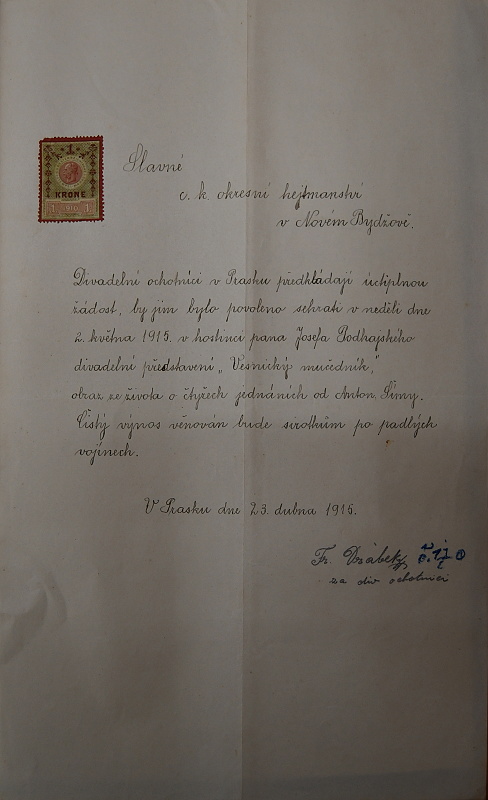 1
KRONE
1 1910 1
Slavné
c. k. okresní hejtmanství
v Novém Bydžově.
Divadelní ochotníci v Prasku předkládají úctiplnou
žádost, by jim bylo povoleno sehrati v neděli dne
2. května 1915. v hostinci pana Josefa Podhajského
divadelní představení „Vesnický mučedník,"
obraz ze života o čtyřech jednáních od Anton. Šímy.
Čistý výnos věnován bude sirotkům po padlých
vojínech.
V Prasku dne 23. dubna 1915.
Fr. Vrábek,
za div ochotníci